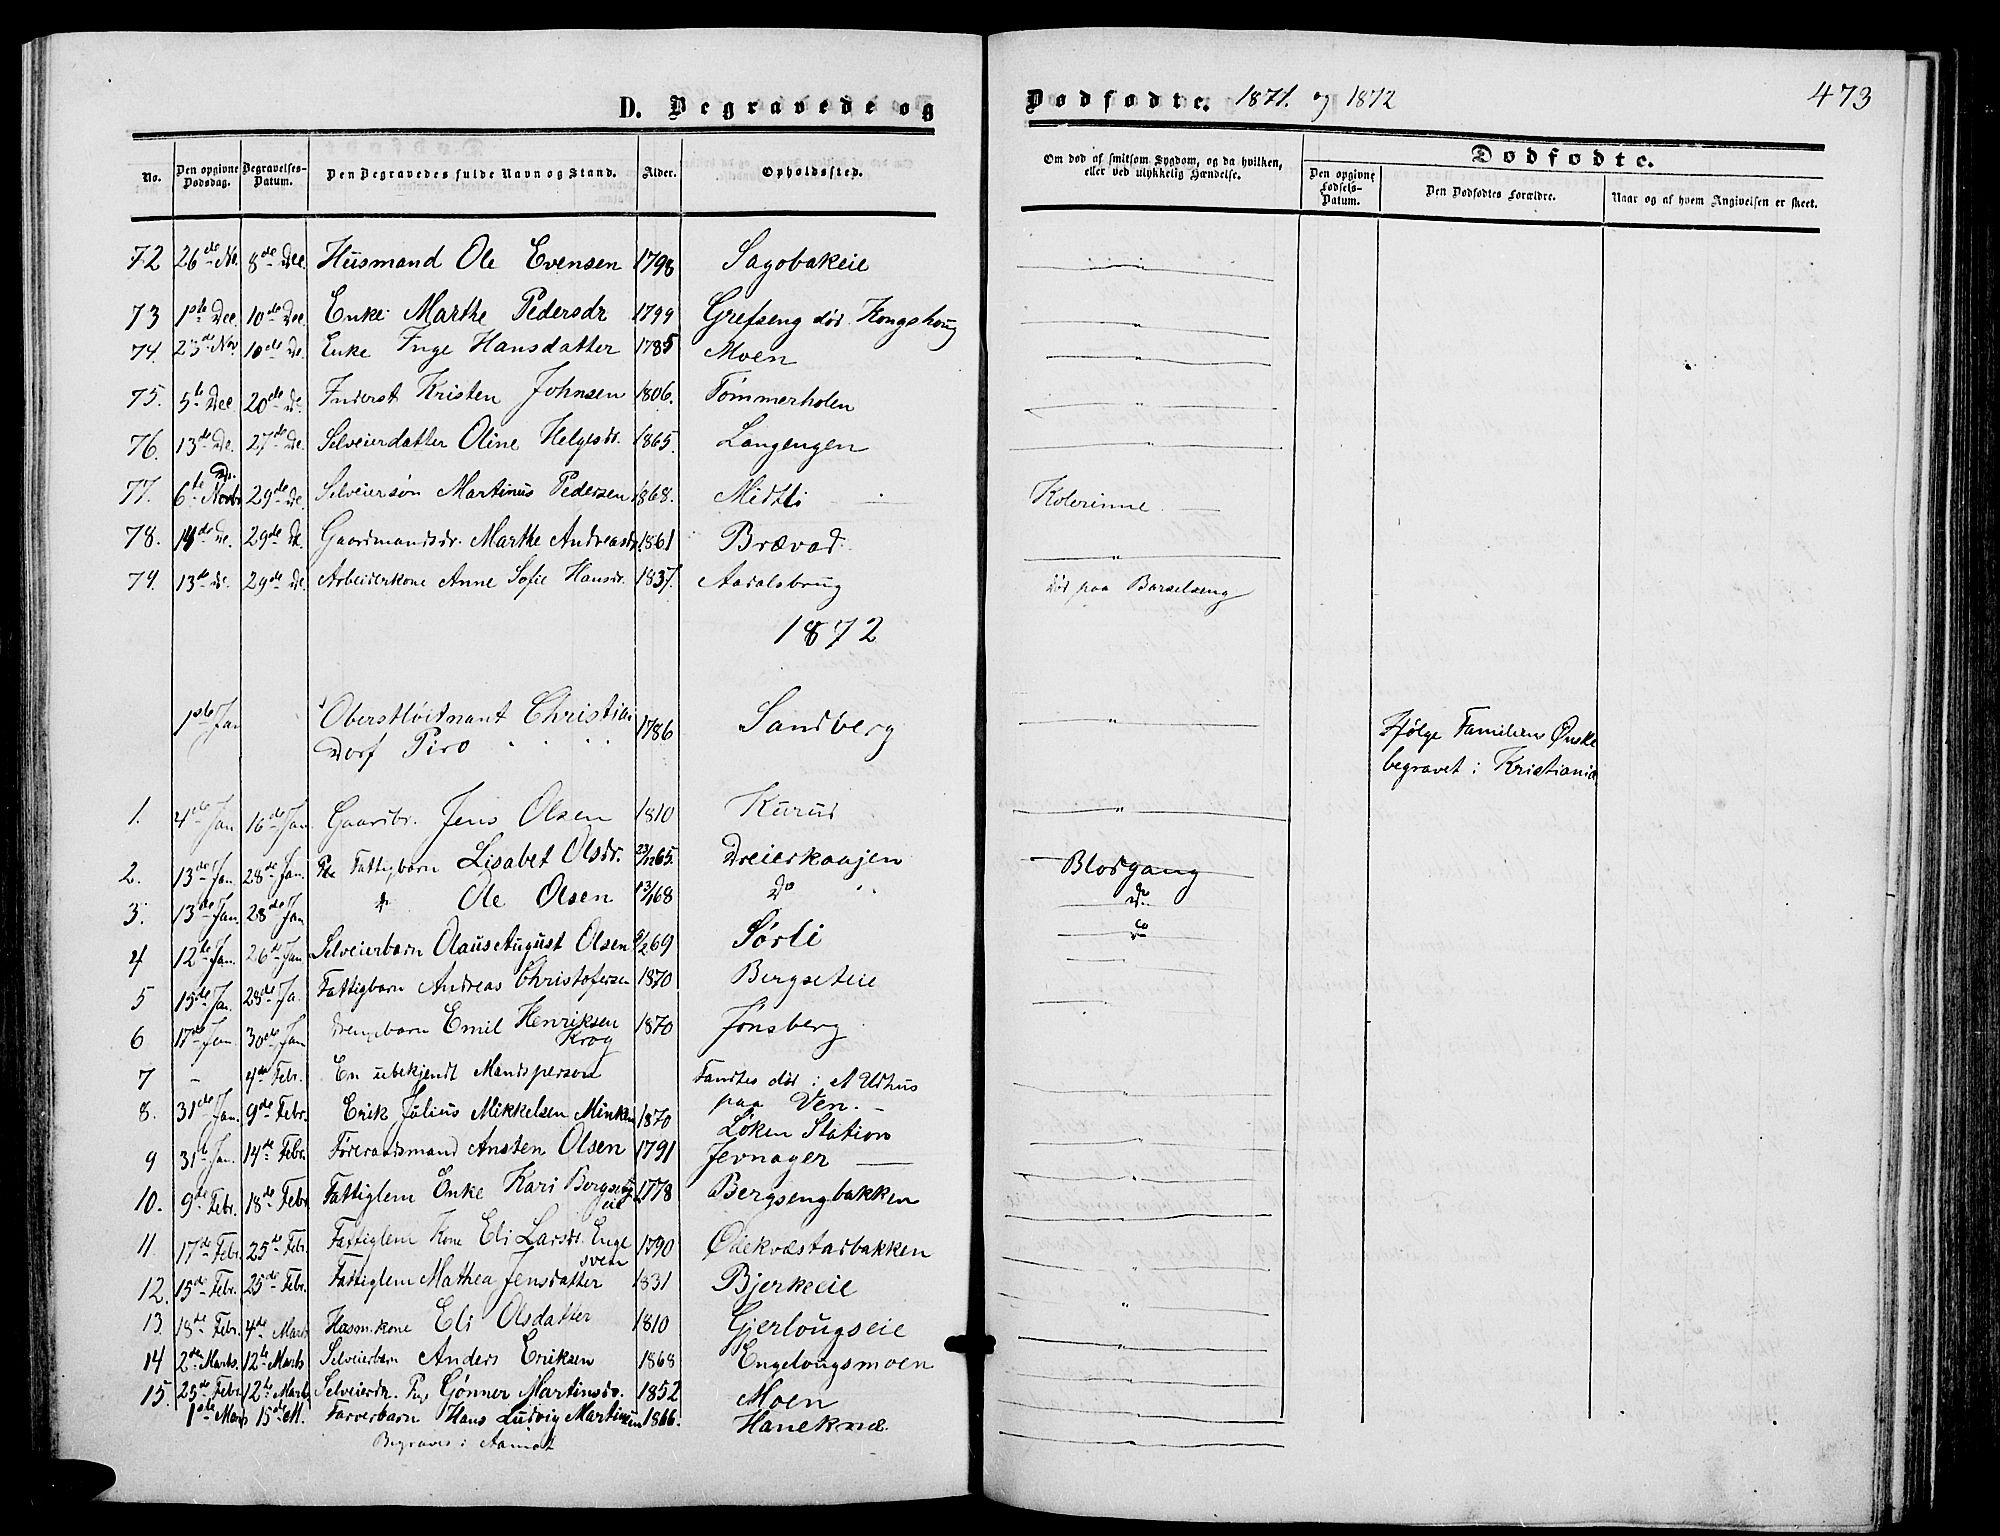 D. Begravede og Dødfødte. 1871. og 1872 473
No. Den opgivne Dødsdag. Begravelses-Datum. Den Begravedes fulde Navn og Stand. Alder. Opholdssted. Om død af smitsom Sygdom, og da hvilken, eller ved ulykkelig Hændelse. Dødfødte.
Den opgivne Fødsels-Datum. Den Dødfødtes Forældre. Naar og af hvem Angivelsen er skeet.
72 26de No. 8de Dec. Husmand Ole Evensen 1798 Sagobakeie "
73 1ste Dec. 10de Dec. Enke Marthe Pedersdr 1799 Grefseng død Kongshoug "
74. 23de Nov. 10de De. Enke Inge Hansdatter 1785 Moen "
75. 5te Dec 20de De. Inderst Kristen Johnsen 1806. Tømmerholen "
76. 13de De. 27de De. Selveierdatter Oline Helgesdr. 1865. Langengen "
77. 6te Novbr De. 29de De. Selveiersøn Martinus Pedersen 1868. Midtli Kolerinne.
78. 14de De. 29de De. Gaardmandsdr. Marthe Andreasdr. 1861 Brævad "
79. 13de De. 29de De Arbeiderkone Anne Sofie Hansdr. 1837. Aadalsbrug Død paa Barselseng
1872
1ste Jan Oberstløitnant Christian 1786 Sandberg " Ifølge Familiens Ønske
Dorf Piro begravet i Kristiania
1. 4de Jan 16de Jan Gaardbr. Jens Olsen 1810 Kurud "
2. 13de Jan. 28de Jan. Fattigbarn Lisabet Olsdr. 23/12 65. Dreierkaajen Blodgang
3. 13de Jan. 28de Jan do Ole Olsen 13/1 68 Do " do
4 12te Jan. 26de Jan Selveierbarn Olaus August Olsen 9/2 69 Sørli do
5 15de Jan. 28de Ja. Fattigbarn Andreas Christofersen 1870 Bergseteie
6 17de Jan. 30de Jan Drengebarn Emil Henriksen 1870 Jønsberg
Krog
7 - 4de Febr. En ubekjendt Mandsperson Fandtes død i et Udhus
paa Ven.
8. 31de Jan. 9de Febr. Erik Julius Mikkelsen Minken 1870 Løken Station
9 31te Jan. 14de Febr. Føderaadsmand Ansten Olsen 1791 Jevnager
10. 9de Febr. 18de Febr Fattiglem Enke Kari Bergseng 1778 Bergsengbakken
eie
11. 17de Febr. 25de Febr. Fattiglem Kone Eli Larsdr. Enge 1790 Ødekvæstadbakken
sveen
12. 15de Febr. 25de Febr. Fattiglem Mathea Jensdatter 1831 Bjerkeeie
13. 18de Febr. 4de Marts Husm.kone Eli Olsdatter 1810 Gjerlougseie
14 2den Marts. 12te Marts Selveierbarn Anders Eriksen 1868 Engelougsmoen
15. 25de Febr 12te Marts Selveierdr. Pige Gønner Martinsdr. 1852 Moen
1ste Marts 15de M. Farverbarn Hans Ludvig Martinsen 1866. Haneknæ
Begraves i Aamot